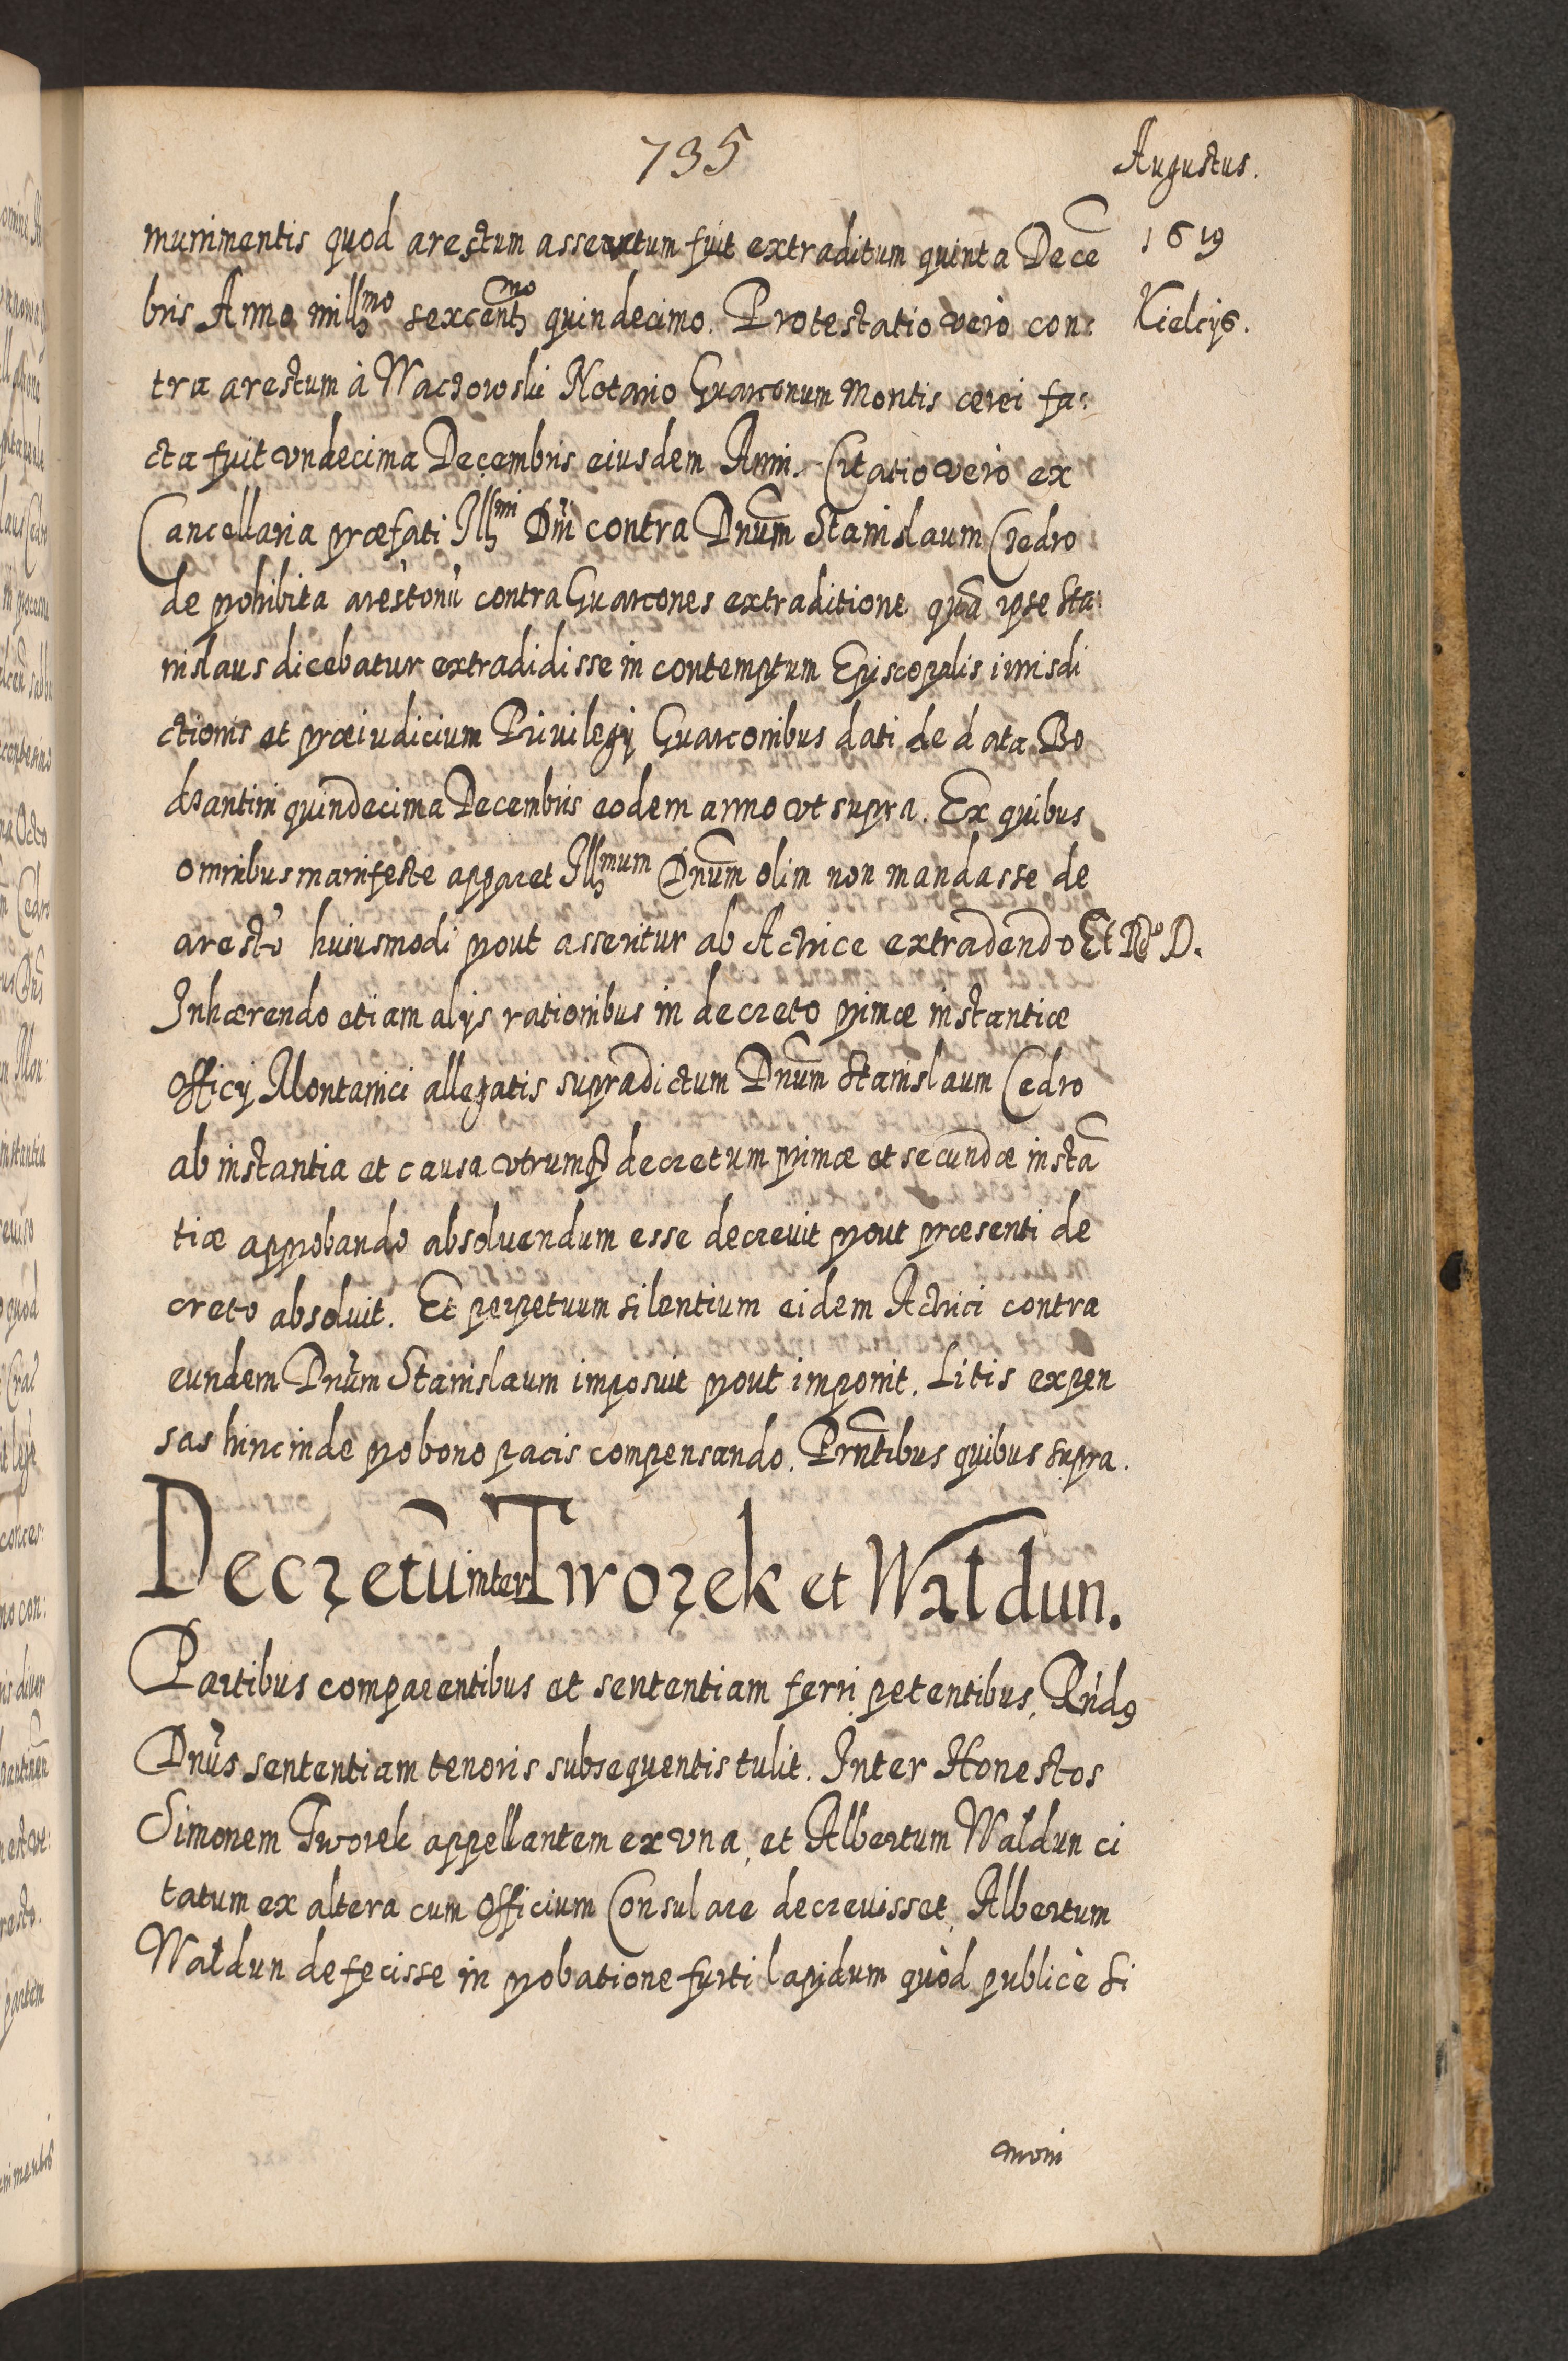 735
Augustus.
munimentis quod arestum assertum fuit extraditum quinta Decē
1619
bris Anno millmo sexcentmo quindecimo. Protestatio verò con:
Kielcijs.
tra arestum à Waczowski Notario Guarconum Montis cerei fa:
cta fuit vndecima Decembris eiusdem Anni. Citatio verò ex
Cancellaria præfati Illmi Dñi contra Dnūm Stanislaum Cedro
de prohibita arestorū contra Guarcones extraditione quā ipse Sta:
nislaus dicebatur extradidisse in contemptum Episcopalis iurisdi
ctionis et præiudicium Priuilegij Guarconibus dati de data Bo
dzantini quindecima Decembris eodem anno vt supra. Ex quibus
omnibus manifeste apparet Illmum Dnūm olim non mandasse de
aresto huiusmodi prout asseritur ab Actrice extradendo Et Rdo D.
Inhærendo etiam alijs rationibus in decreto primæ instantiæ
Officij Montanici allegatis supradictum Dnūm Stanislaum Cedro
ab instantia et causa vtrumq decretum primæ et secundæ instā
tiæ approbando absoluendum esse decreuit prout præsenti de
creto absoluit. Et perpetuum silentium eidem Actrici contra
eundem Dnūm Stanislaum imposuit prout imponit. Litis expen
sas hinc inde pro bono pacis compensando. Prntibus quibus supra.
Decretū inter Tworek et Wałdun.
Partibus comparentibus et sententiam ferri petentibus, Rñdus
Dnūs sententiam tenoris subsequentis tulit. Inter Honestos
Simonem Tworek appellantem ex vna, et Albertum Wałdun ci
tatum ex altera cum Officium Consulare decreuisset, Albertum
Wałdun defecisse in probatione furti lapidum quòd publicè Si
moni